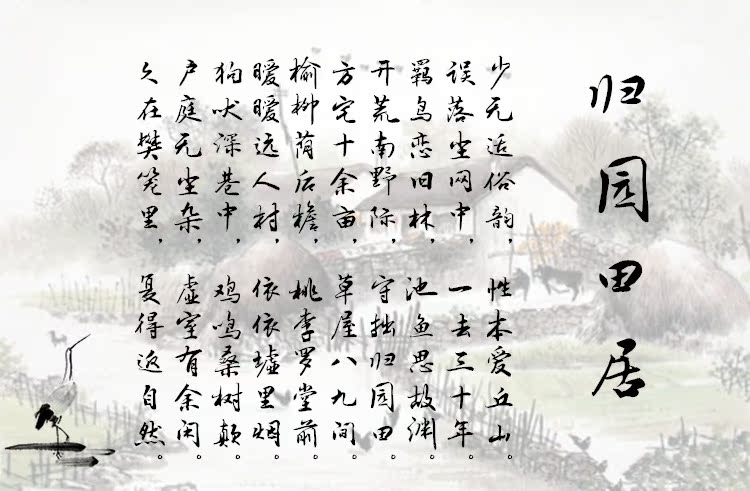 归园田居
少无适俗韵，性本爱丘山。
误落尘网中，一去三十年。
羁鸟恋旧林，池鱼思故渊。
开荒南野际，守拙归园田。
方宅十余亩，草屋八九间。
榆柳荫后檐，桃李罗堂前。
暧暧远人村，依依墟里烟。
狗吠深巷中，鸡鸣桑树颠。
户庭无尘杂，虚室有余闲。
久在樊笼里，复得返自然。